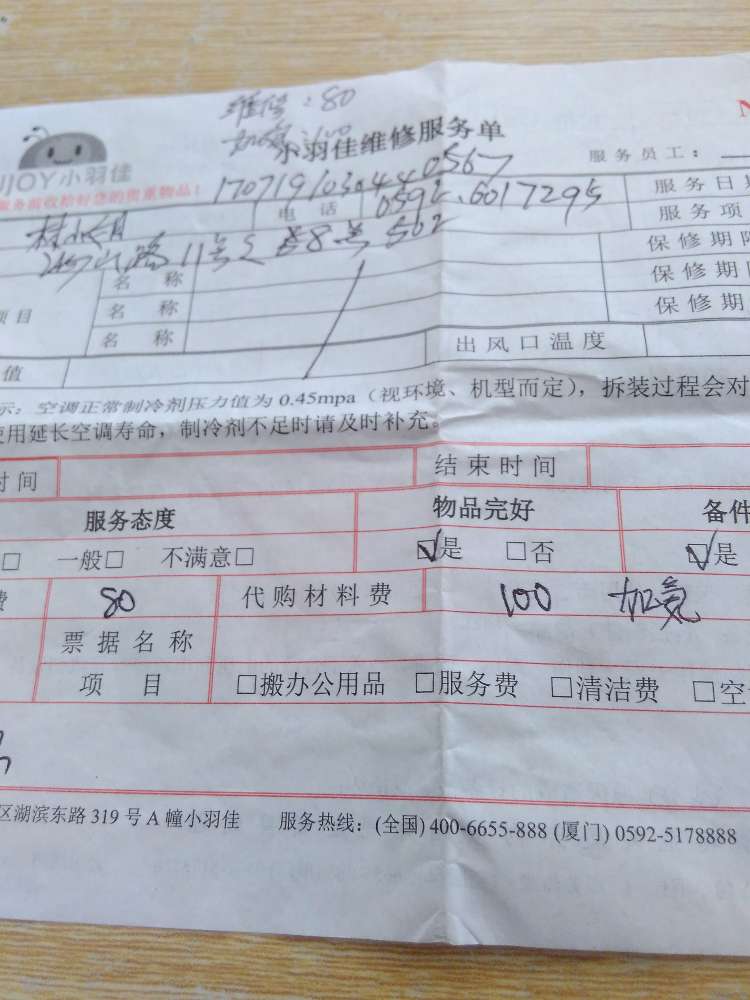 维修：80
小羽佳维修服务单
N
服务员工：
JOY小羽佳
服务前收拾好您的贵重物品！
17071910304440567
服务日
电 话 0592.6017295
服务项
11号之 8号 502
保修期限
名 称
保修期
项目 名 称
保修期
名 称
值 出风口温度
示：空调正常制冷剂压力值为 0.45mpa（视环境、机型而定），拆装过程会对
使用延长空调寿命，制冷剂不足时请及时补充。
时间 结束时间
服务态度 物品完好 备件
□ 一般□ 不满意□ ☑是 □否 ☑是
费 80 代购材料费 100 加氟
票据名称
项 目 □搬办公用品 □服务费 □清洁费 □空
区湖滨东路 319 号 A 幢小羽佳 服务热线：(全国) 400-6655-888 (厦门) 0592-5178888